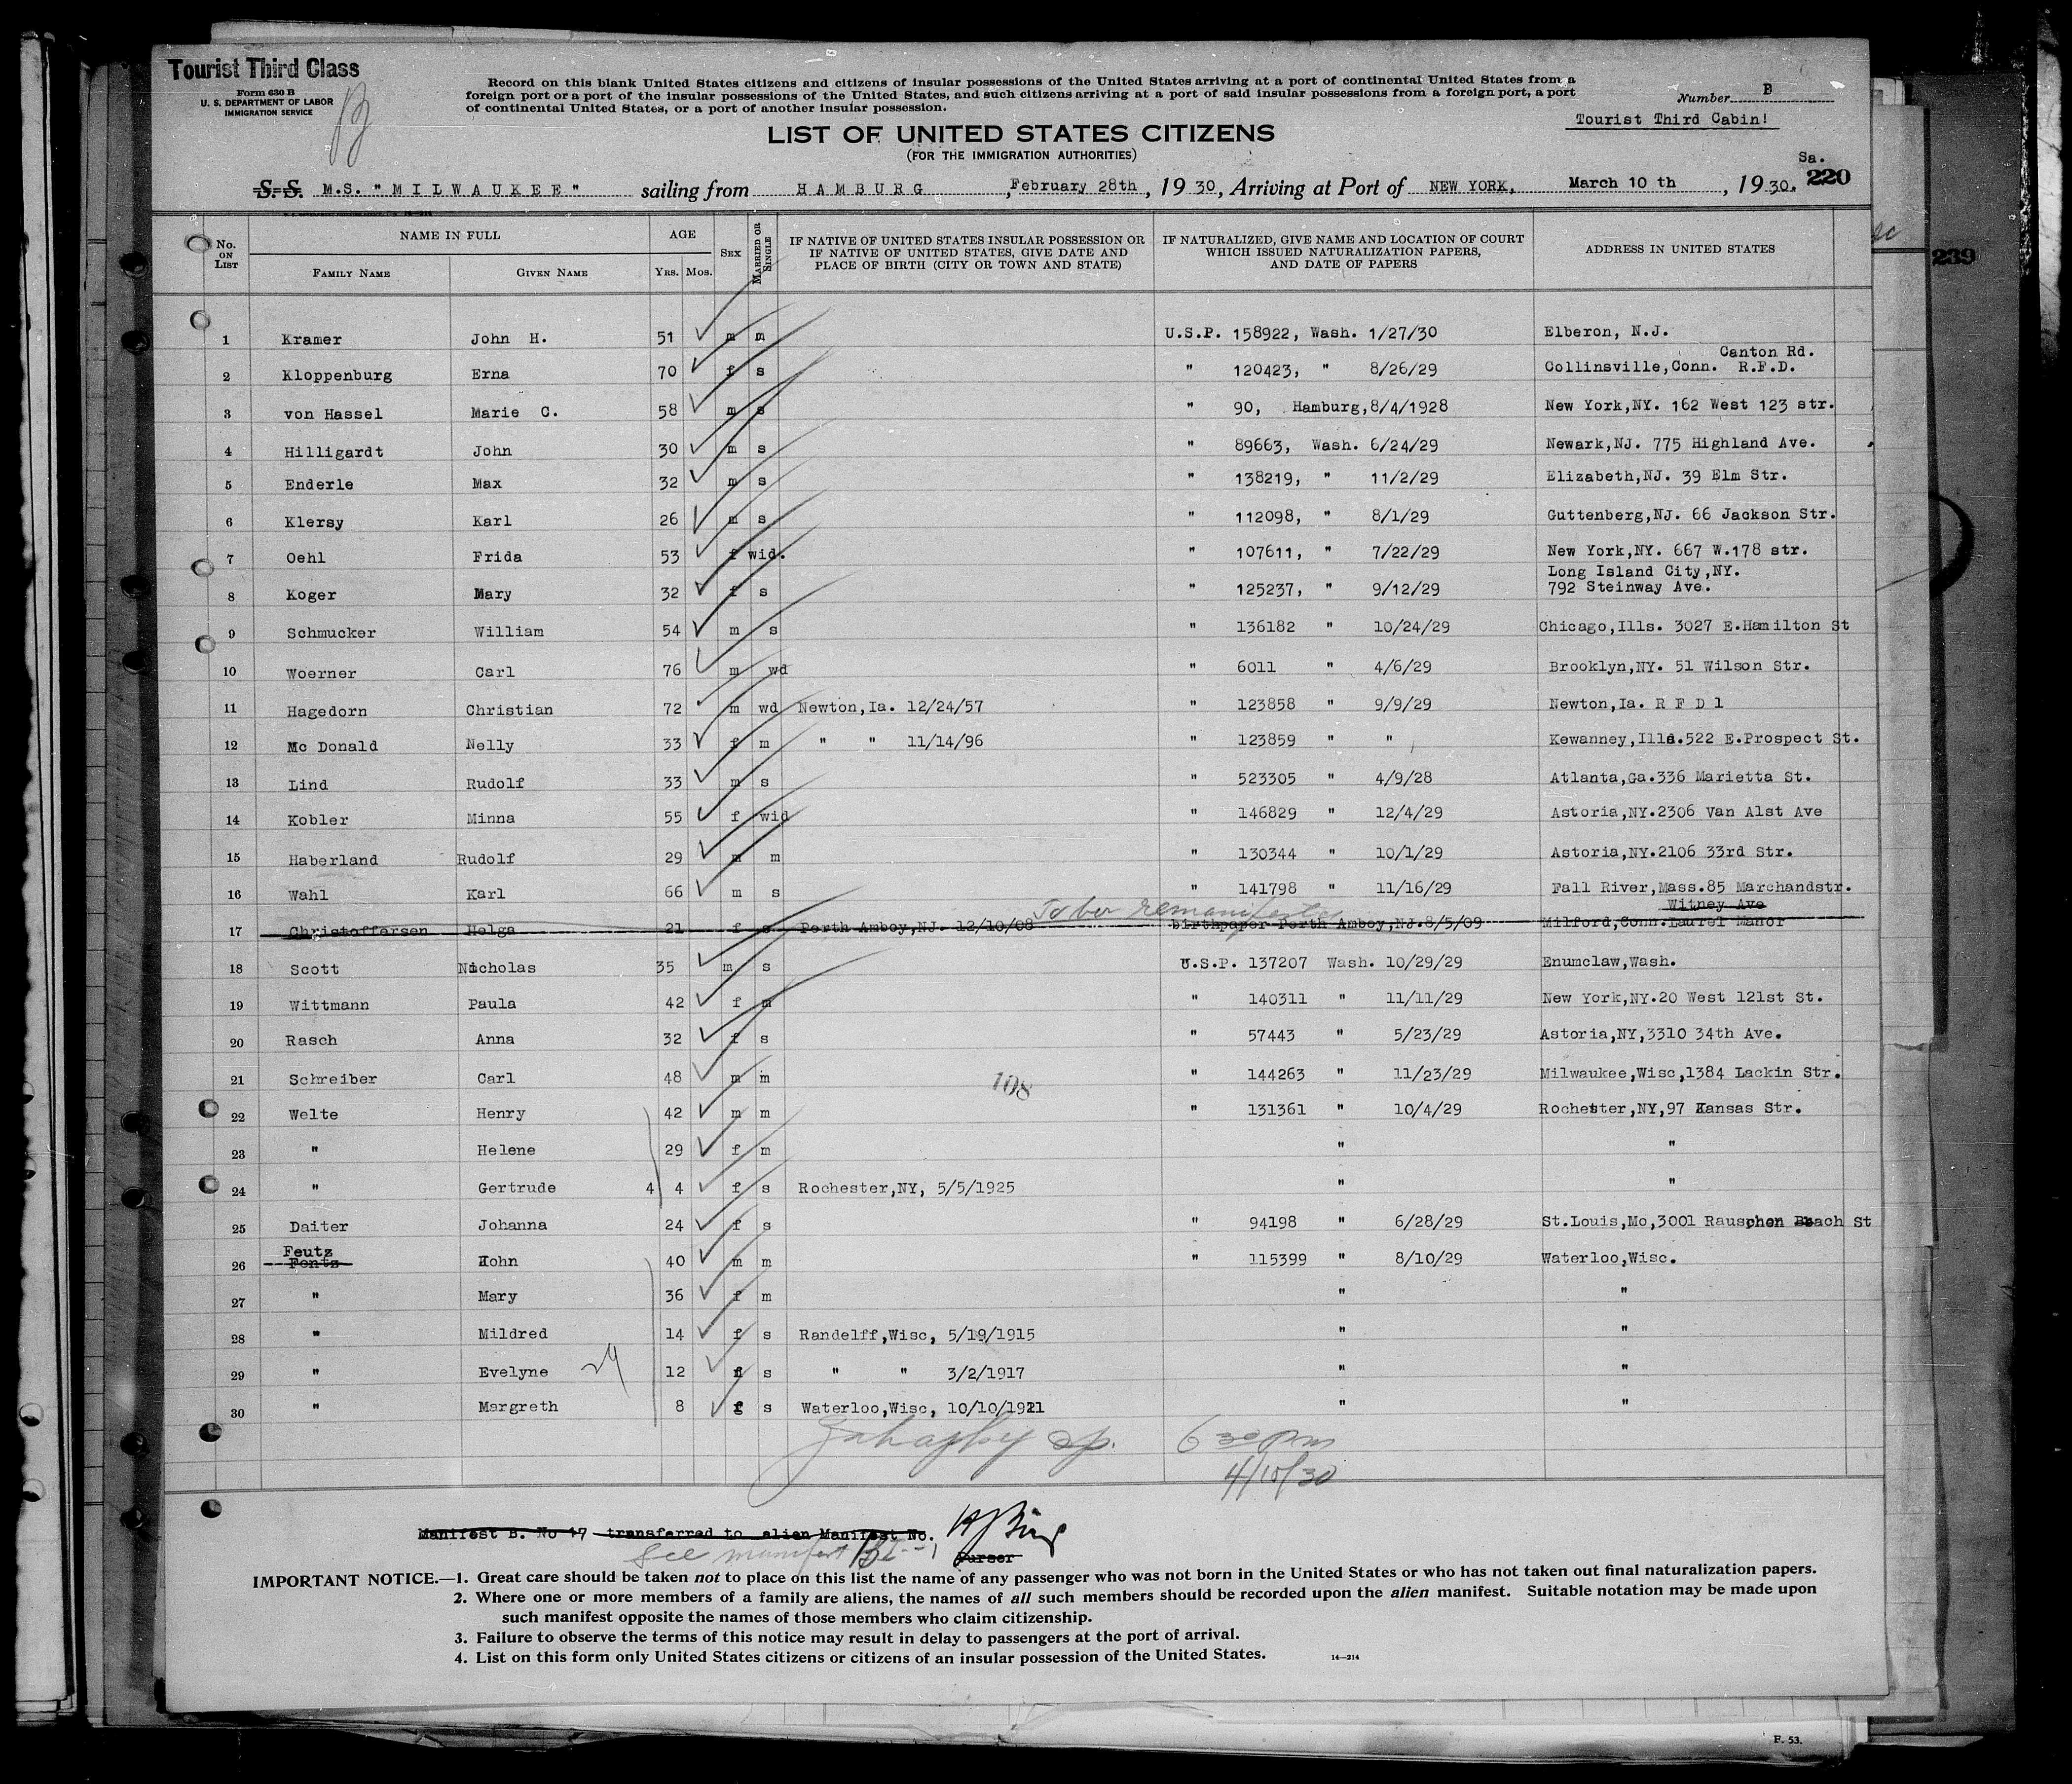 Tourist Third Class
Form 630 B
U. S. DEPARTMENT OF LABOR
IMMIGRATION SERVICE
B
Record on this blank United States citizens and citizens of insular possessions of the United States arriving at a port of continental United States from a
foreign port or a port of the insular possessions of the United States, and such citizens arriving at a port of said insular possessions from a foreign port, a port
of continental United States, or a port of another insular possession.
Number B
Tourist Third Cabin!
LIST OF UNITED STATES CITIZENS
(FOR THE IMMIGRATION AUTHORITIES)
Sa.
S.S. M.S. "MILWAUKEE" sailing from HAMBURG, February 28th, 1930, Arriving at Port of NEW YORK, March 10 th, 1930. 220
239
No. ON LIST NAME IN FULL AGE SEX MARRIED OR SINGLE IF NATIVE OF UNITED STATES INSULAR POSSESSION OR IF NATIVE OF UNITED STATES, GIVE DATE AND PLACE OF BIRTH (CITY OR TOWN AND STATE) IF NATURALIZED, GIVE NAME AND LOCATION OF COURT WHICH ISSUED NATURALIZATION PAPERS, AND DATE OF PAPERS ADDRESS IN UNITED STATES
FAMILY NAME GIVEN NAME YRS. MOS.
1 Kramer John H. 51 m m U.S.P. 158922, Wash. 1/27/30 Elberon, N.J.
Canton Rd.
2 Kloppenburg Erna 70 f s " 120423, " 8/26/29 Collinsville,Conn. R.F.D.
3 von Hassel Marie C. 58 m s " 90, Hamburg,8/4/1928 New York,NY. 162 West 123 str.
4 Hilligardt John 30 m s " 89663, Wash. 6/24/29 Newark,NJ. 775 Highland Ave.
5 Enderle Max 32 m s " 138219, " 11/2/29 Elizabeth,NJ. 39 Elm Str.
6 Klersy Karl 26 m s " 112098, " 8/1/29 Guttenberg,NJ. 66 Jackson Str.
7 Oehl Frida 53 f wid. " 107611, " 7/22/29 New York,NY. 667 W.178 str.
Long Island City,NY.
8 Koger Mary 32 f s " 125237, " 9/12/29 792 Steinway Ave.
9 Schmucker William 54 m s " 136182 " 10/24/29 Chicago,Ills. 3027 E.Hamilton St
10 Woerner Carl 76 m wd " 6011 " 4/6/29 Brooklyn,NY. 51 Wilson Str.
11 Hagedorn Christian 72 m wd Newton,Ia. 12/24/57 " 123858 " 9/9/29 Newton,Ia. R F D 1
12 Mc Donald Nelly 33 f m " " 11/14/96 " 123859 " " Kewanney,Ills.522 E.Prospect St.
13 Lind Rudolf 33 m s " 523305 " 4/9/28 Atlanta,Ga.336 Marietta St.
14 Kobler Minna 55 f wid " 146829 " 12/4/29 Astoria,NY.2306 Van Alst Ave
15 Haberland Rudolf 29 m m " 130344 " 10/1/29 Astoria,NY.2106 33rd Str.
16 Wahl Karl 66 m s " 141798 " 11/16/29 Fall River,Mass.85 Marchandstr.
To be remanifested Witney Ave
17 Christoffersen Helga 21 f s Perth Amboy,NJ. 12/10/08 birthpaper Perth Amboy,NJ.8/5/09 Milford,Conn.Laurel Manor
18 Scott Nicholas 35 m s U.S.P. 137207 Wash. 10/29/29 Enumclaw,Wash.
19 Wittmann Paula 42 f m " 140311 " 11/11/29 New York,NY.20 West 121st St.
20 Rasch Anna 32 f s " 57443 " 5/23/29 Astoria,NY,3310 34th Ave.
21 Schreiber Carl 48 m m 108 " 144263 " 11/23/29 Milwaukee,Wisc,1384 Lackin Str.
22 Welte Henry 42 m m " 131361 " 10/4/29 Rochester,NY,97 Kansas Str.
23 " Helene 29 f m " "
24 " Gertrude 4 4 f s Rochester,NY, 5/5/1925 " "
25 Daiter Johanna 24 f s " 94198 " 6/28/29 St.Louis,Mo,3001 Rauschen Bach St
Feutz
26 Fentz John 40 m m " 115399 " 8/10/29 Waterloo,Wisc.
27 " Mary 36 f m " "
28 " Mildred 14 f s Randelff,Wisc, 5/19/1915 " "
29 " Evelyne 29 12 f s " " 3/2/1917 " "
30 " Margreth 8 f s Waterloo,Wisc, 10/10/1921 " "
6 30 pm
4/10/30
Manifest B. No 17 transferred to alien Manifest No.
See manifest
Purser
IMPORTANT NOTICE.—1. Great care should be taken not to place on this list the name of any passenger who was not born in the United States or who has not taken out final naturalization papers.
2. Where one or more members of a family are aliens, the names of all such members should be recorded upon the alien manifest. Suitable notation may be made upon
such manifest opposite the names of those members who claim citizenship.
3. Failure to observe the terms of this notice may result in delay to passengers at the port of arrival.
4. List on this form only United States citizens or citizens of an insular possession of the United States. 14—214
F. 53.